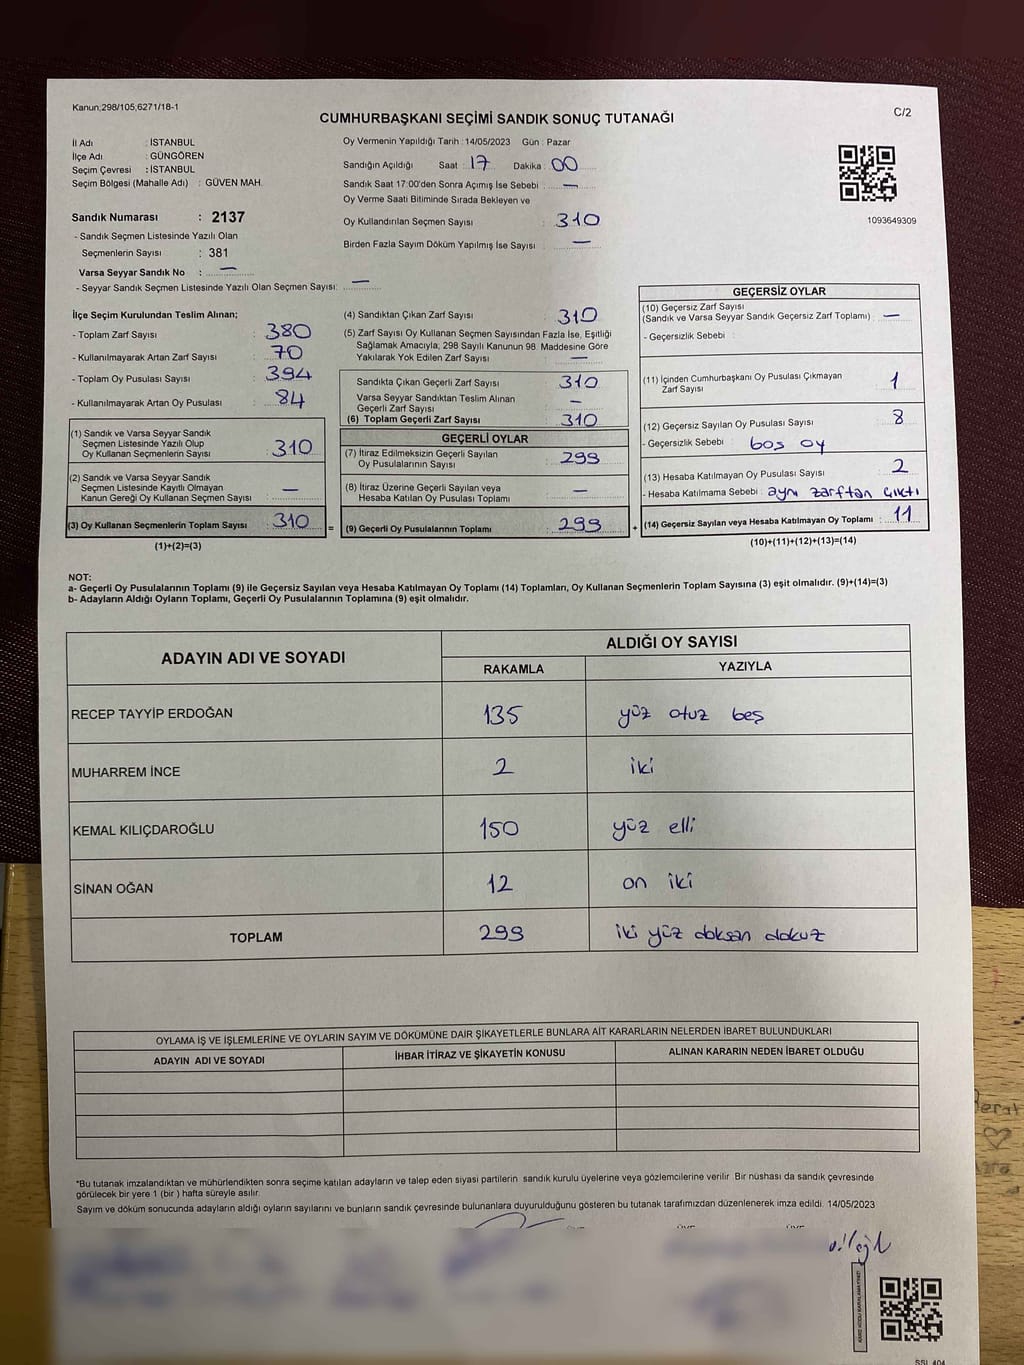 Kanun,298/105,6271/18-1
C/2
CUMHURBAŞKANI SEÇİMİ SANDIK SONUÇ TUTANAĞI
İl Adı : İSTANBUL
İlçe Adı : GÜNGÖREN
Seçim Çevresi : İSTANBUL
Seçim Bölgesi (Mahalle Adı) : GÜVEN MAH.
Sandık Numarası : 2137
- Sandık Seçmen Listesinde Yazılı Olan
Seçmenlerin Sayısı : 381
Varsa Seyyar Sandık No : —
- Seyyar Sandık Seçmen Listesinde Yazılı Olan Seçmen Sayısı: —
Oy Vermenin Yapıldığı Tarih : 14/05/2023 Gün : Pazar
Sandığın Açıldığı Saat : 17 Dakika : 00
Sandık Saat 17:00'den Sonra Açımış İse Sebebi : —
Oy Verme Saati Bitiminde Sırada Bekleyen ve
Oy Kullandırılan Seçmen Sayısı : 310
Birden Fazla Sayım Döküm Yapılmış İse Sayısı : —
1093649309
İlçe Seçim Kurulundan Teslim Alınan;
- Toplam Zarf Sayısı : 380
- Kullanılmayarak Artan Zarf Sayısı : 70
- Toplam Oy Pusulası Sayısı : 394
- Kullanılmayarak Artan Oy Pusulası : 84
(1) Sandık ve Varsa Seyyar Sandık
Seçmen Listesinde Yazılı Olup
Oy Kullanan Seçmenlerin Sayısı : 310
(2) Sandık ve Varsa Seyyar Sandık
Seçmen Listesinde Kayıtlı Olmayan
Kanun Gereği Oy Kullanan Seçmen Sayısı : —
(3) Oy Kullanan Seçmenlerin Toplam Sayısı : 310 =
(1)+(2)=(3)
(4) Sandıktan Çıkan Zarf Sayısı : 310
(5) Zarf Sayısı Oy Kullanan Seçmen Sayısından Fazla İse, Eşitliği
Sağlamak Amacıyla, 298 Sayılı Kanunun 98. Maddesine Göre
Yakılarak Yok Edilen Zarf Sayısı : —
Sandıkta Çıkan Geçerli Zarf Sayısı : 310
Varsa Seyyar Sandıktan Teslim Alınan
Geçerli Zarf Sayısı : —
(6) Toplam Geçerli Zarf Sayısı : 310
GEÇERLİ OYLAR
(7) İtiraz Edilmeksizin Geçerli Sayılan
Oy Pusulalarının Sayısı : 299
(8) İtiraz Üzerine Geçerli Sayılan veya
Hesaba Katılan Oy Pusulası Toplamı : —
(9) Geçerli Oy Pusulalarının Toplamı : 299 +
GEÇERSİZ OYLAR
(10) Geçersiz Zarf Sayısı
(Sandık ve Varsa Seyyar Sandık Geçersiz Zarf Toplamı) : —
- Geçersizlik Sebebi :
(11) İçinden Cumhurbaşkanı Oy Pusulası Çıkmayan
Zarf Sayısı : 1
(12) Geçersiz Sayılan Oy Pusulası Sayısı : 8
- Geçersizlik Sebebi : boş oy
(13) Hesaba Katılmayan Oy Pusulası Sayısı : 2
- Hesaba Katılmama Sebebi : aynı zarftan çıktı
(14) Geçersiz Sayılan veya Hesaba Katılmayan Oy Toplamı : 11
(10)+(11)+(12)+(13)=(14)
NOT:
a- Geçerli Oy Pusulalarının Toplamı (9) ile Geçersiz Sayılan veya Hesaba Katılmayan Oy Toplamı (14) Toplamları, Oy Kullanan Seçmenlerin Toplam Sayısına (3) eşit olmalıdır. (9)+(14)=(3)
b- Adayların Aldığı Oyların Toplamı, Geçerli Oy Pusulalarının Toplamına (9) eşit olmalıdır.
ADAYIN ADI VE SOYADI ALDIĞI OY SAYISI
RAKAMLA YAZIYLA
RECEP TAYYİP ERDOĞAN 135 yüz otuz beş
MUHARREM İNCE 2 iki
KEMAL KILIÇDAROĞLU 150 yüz elli
SİNAN OĞAN 12 on iki
TOPLAM 299 iki yüz doksan dokuz
OYLAMA İŞ VE İŞLEMLERİNE VE OYLARIN SAYIM VE DÖKÜMÜNE DAİR ŞİKAYETLERLE BUNLARA AİT KARARLARIN NELERDEN İBARET BULUNDUKLARI
ADAYIN ADI VE SOYADI İHBAR İTİRAZ VE ŞİKAYETİN KONUSU ALINAN KARARIN NEDEN İBARET OLDUĞU
*Bu tutanak imzalandıktan ve mühürlendikten sonra seçime katılan adayların ve talep eden siyasi partilerin sandık kurulu üyelerine veya gözlemcilerine verilir. Bir nüshası da sandık çevresinde
görülecek bir yere 1 (bir ) hafta süreyle asılır.
Sayım ve döküm sonucunda adayların aldığı oyların sayılarını ve bunların sandık çevresinde bulunanlara duyurulduğunu gösteren bu tutanak tarafımızdan düzenlenerek imza edildi. 14/05/2023
KARE KODU KARALAMAYINIZ!